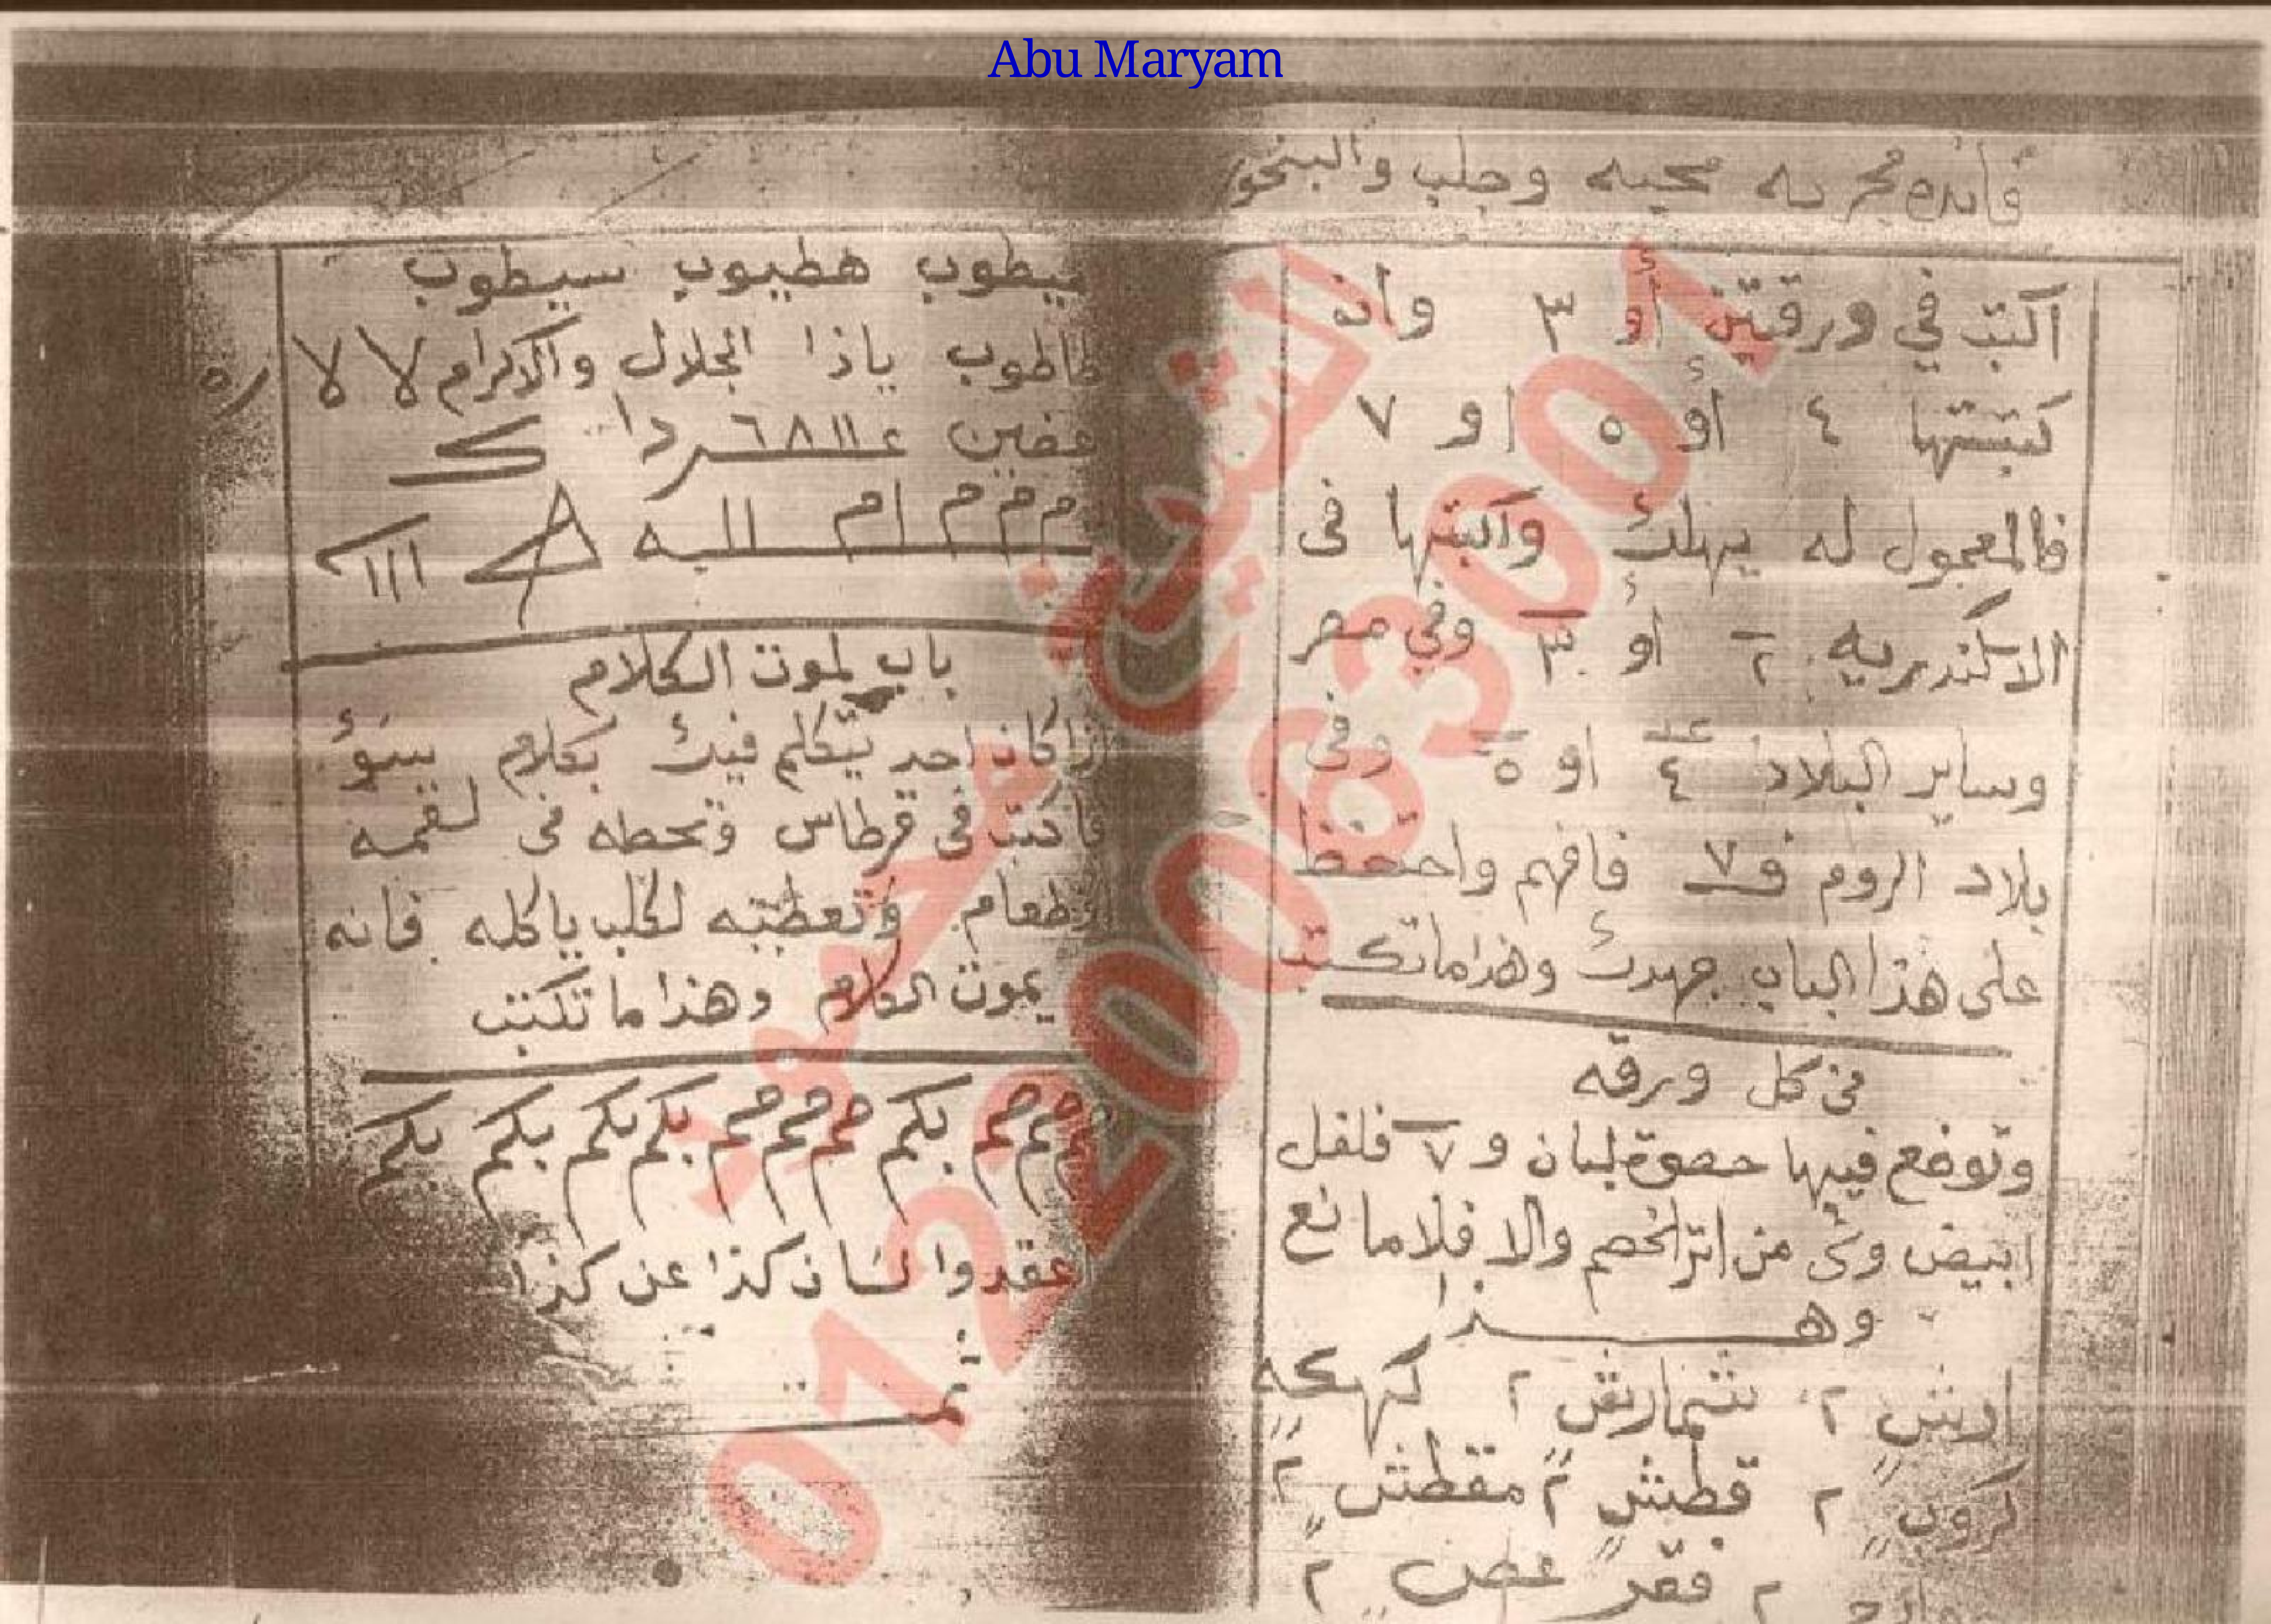 Abu Maryam
فائده مجربه محبه وجلب والبخور
اكتب في ورقتين أو ٣ وان
كتبتها ٤ أو ٥ او ٧
فالمعمول له يهلك واكتبها فى
الاسكندريه ٢ أو ٣ وفي مصر
وساير البلاد ٤ او ٥ وفى
بلاد الروم ٧ فافهم واحتفظ
على هذا الباب جهدك وهذا ما تكتب
في كل ورقه
وتوضع فيها حصوة لبان و ٧ فلفل
ابيض وشئ من اتر الخصم والا فلا مانع
وهــذا
اريش ٢ شمارش ٢ كهكه
كروب ٢ قطيش ٢ مقطش ٢
٢ فقر عصن ٢
يطوب هطيوب سيطوب
طاطوب ياذا الجلال والاكرام لا لا
باب لموت الكلام
اذا كان احد يتكلم فيك بكلام سوء
فاكتب فى قرطاس وتحطه فى لقمه
طعام وتعطيه لكلب ياكله فانه
يموت الكلام وهذا ما تكتب
بكم بكم بكم بكم بكم
عقدوا لسان كذا عن كذا
تمـت
الشيخ
01220063001